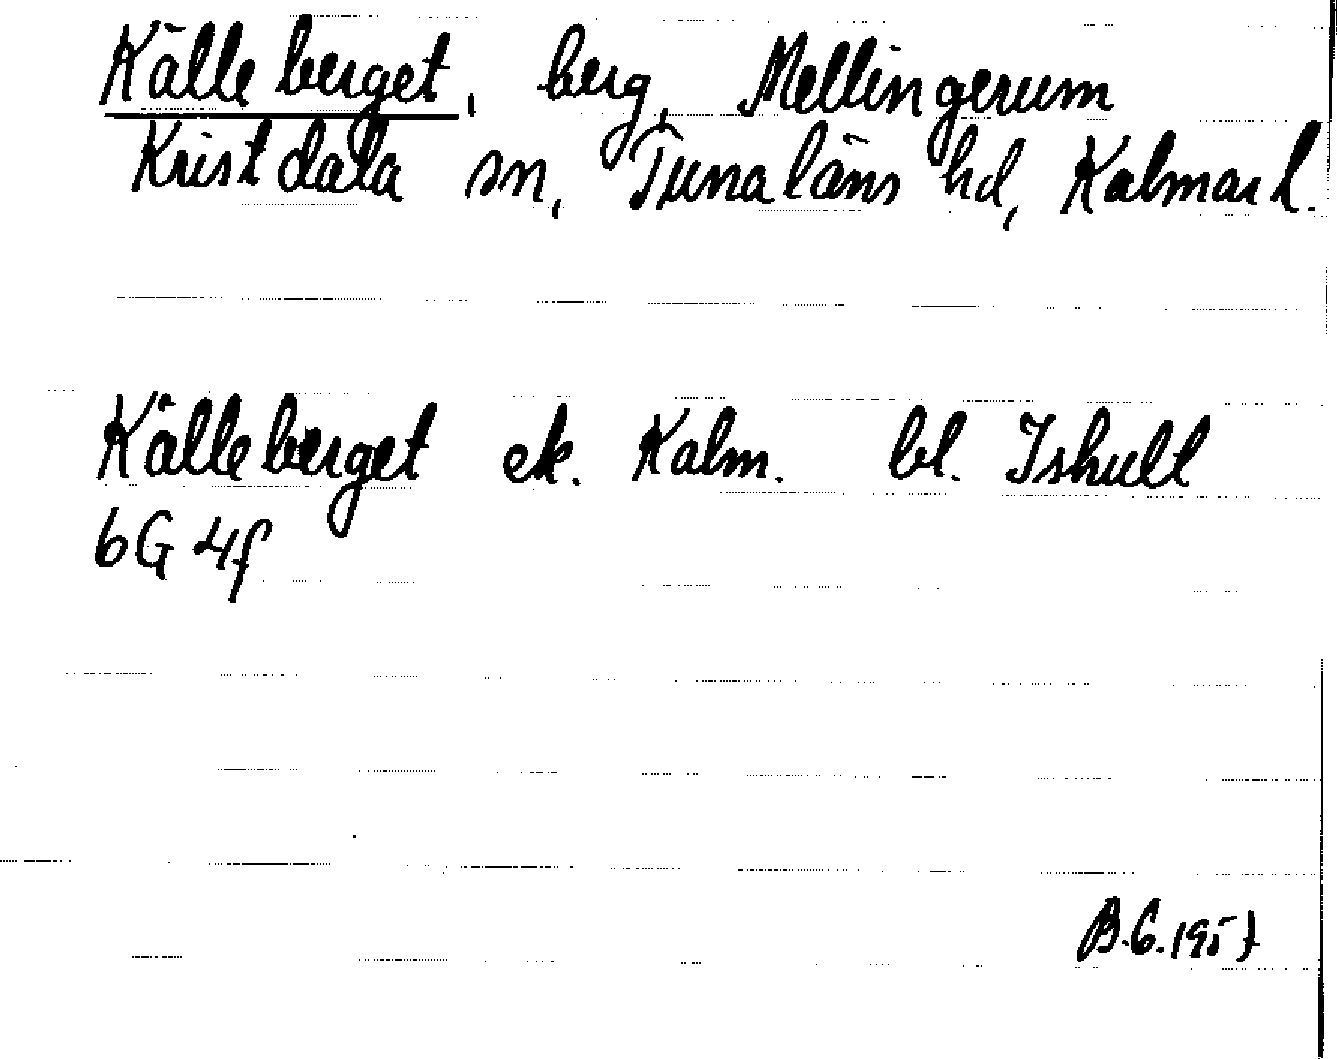 Källeberget, berg, Mellingerum
Kristdala sn, Tunaläns hd, Kalmar l.
Källeberget ek. Kalm. bl. Ishult
6G 4f
B.G. 1957